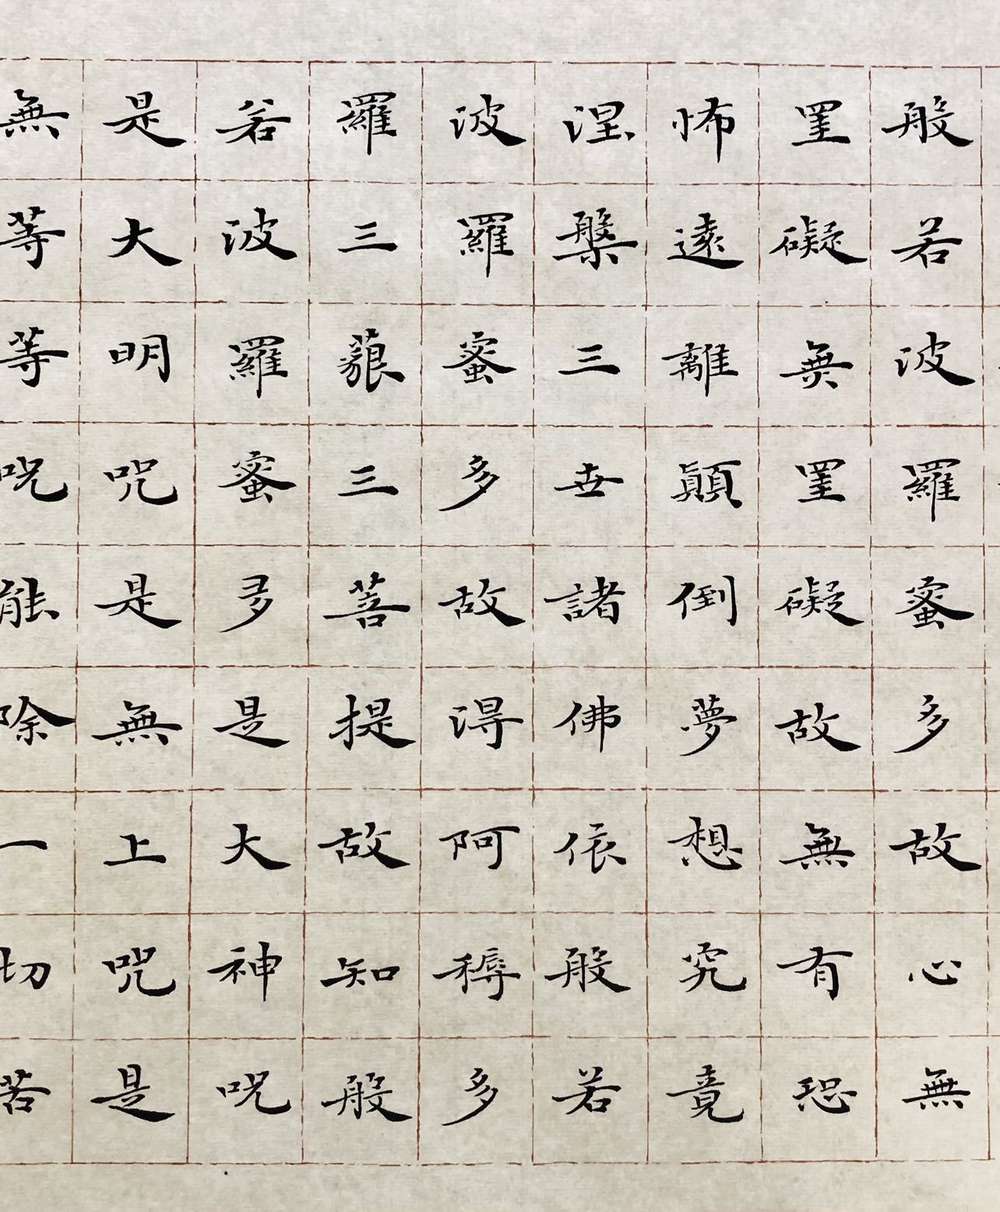 般若波羅蜜多故心無
罣礙無罣礙故無有恐
怖遠離顛倒夢想究竟
涅槃三世諸佛依般若
波羅蜜多故得阿耨多
羅三藐三菩提故知般
若波羅蜜多是大神呪
是大明呪是無上呪是
無等等呪能除一切苦